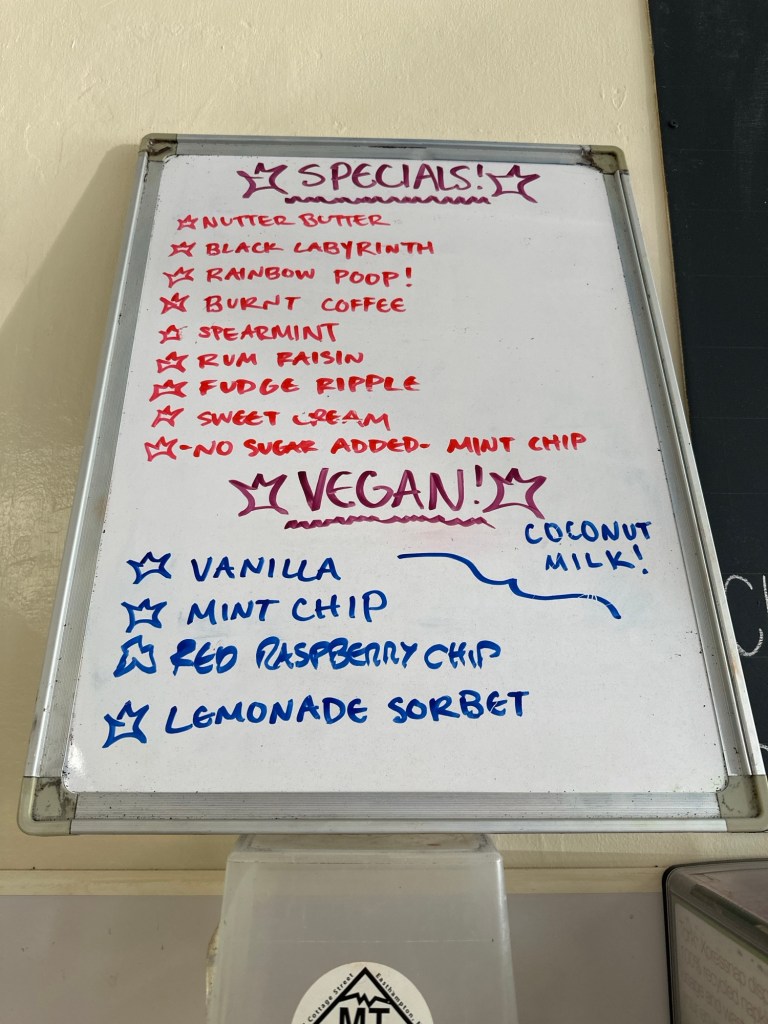 SPECIALS!
NUTTER BUTTER
BLACK LABYRINTH
RAINBOW POOP!
BURNT COFFEE
SPEARMINT
RUM RAISIN
FUDGE RIPPLE
SWEET CREAM
-NO SUGAR ADDED- MINT CHIP
VEGAN!
COCONUT
MILK!
VANILLA
MINT CHIP
RED RASPBERRY CHIP
LEMONADE SORBET
Cottage Street
Easthampton,
MT